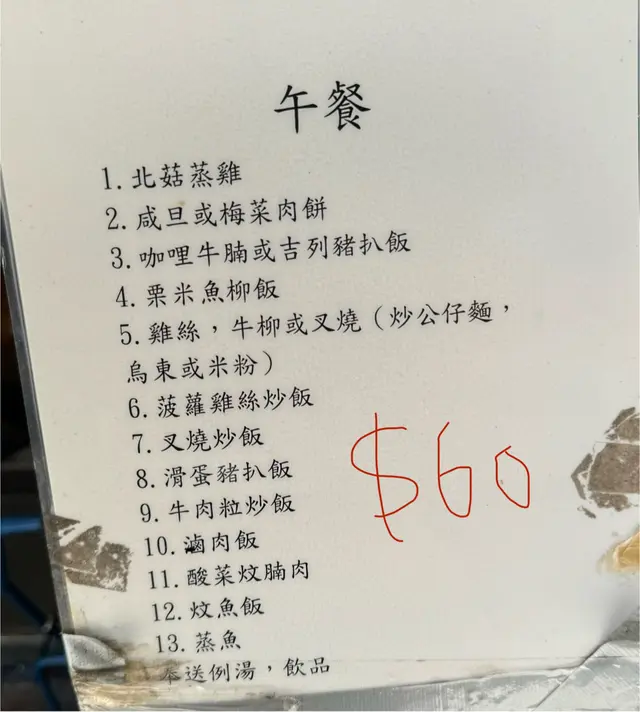 午餐
1. 北菇蒸雞
2. 咸旦或梅菜肉餅
3. 咖哩牛腩或吉列豬扒飯
4. 栗米魚柳飯
5. 雞絲，牛柳或叉燒（炒公仔麵，
烏東或米粉）
6. 菠蘿雞絲炒飯
7. 叉燒炒飯
8. 滑蛋豬扒飯
9. 牛肉粒炒飯
10. 滷肉飯
11. 酸菜炆腩肉
12. 炆魚飯
13. 蒸魚
奉送例湯，飲品
$60